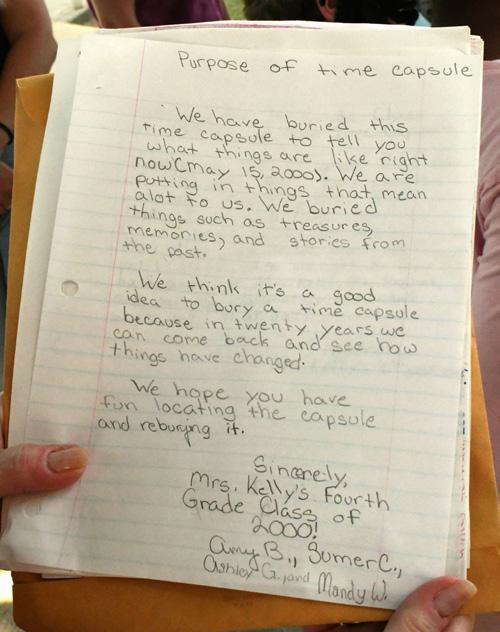 Purpose of time capsule
We have buried this
time capsule to tell you
what things are like right
now(may 15, 2000). We are
putting in things that mean
alot to us. We buried
things such as treasures,
memories, and stories from
the past.
We think it's a good
idea to bury a time capsule
because in twenty years we
can come back and see how
things have changed.
We hope you have
fun locating the capsule
and reburying it.
Sincerely,
Mrs. Kelly's Fourth
Grade Class of
2000!
Amy B., Sumer C.,
Ashley G., and Mandy W.